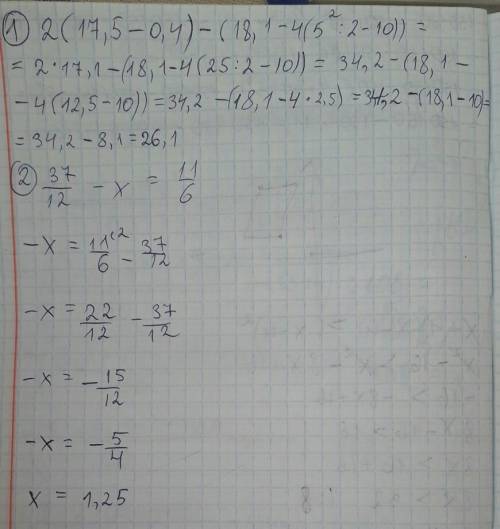 ① 2(17,5-0,4)-(18,1-4(5²:2-10))=
=2·17,1-(18,1-4(25:2-10))=34,2-(18,1-
-4(12,5-10))=34,2-(18,1-4·2,5)=34,2-(18,1-10)=
=34,2-8,1=26,1
② 37/12 - x = 11/6
-x = 11⁽²/6 - 37/12
-x = 22/12 - 37/12
-x = -15/12
-x = -5/4
x = 1,25